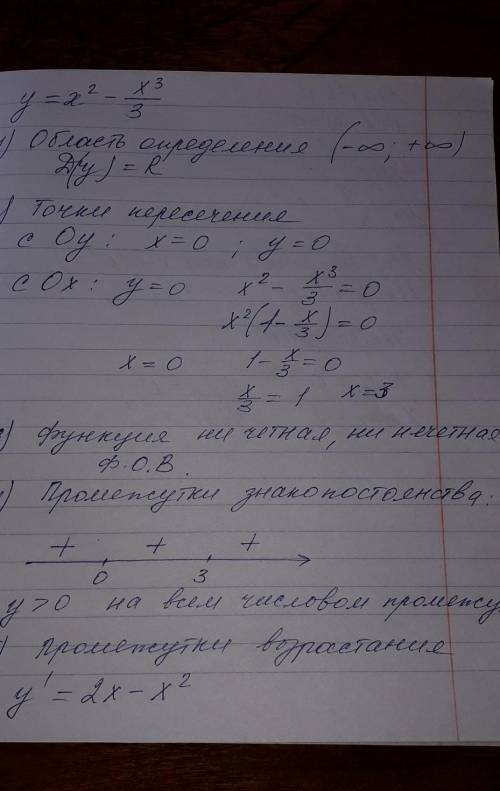 y = x² - x³/3
) Область определения (-∞; +∞)
D(y) = R
) Точки пересечения
с Oy: x = 0 ; y = 0
с Ox: y = 0 x² - x³/3 = 0
x²(1 - x/3) = 0
x = 0 1 - x/3 = 0
x/3 = 1 x = 3
) Функция ни четная, ни нечетная
Ф.О.В.
) Промежутки знакопостоянства:
+ + +
0 3
y > 0 на всем числовом промежу
) Промежутки возрастания
y' = 2x - x²